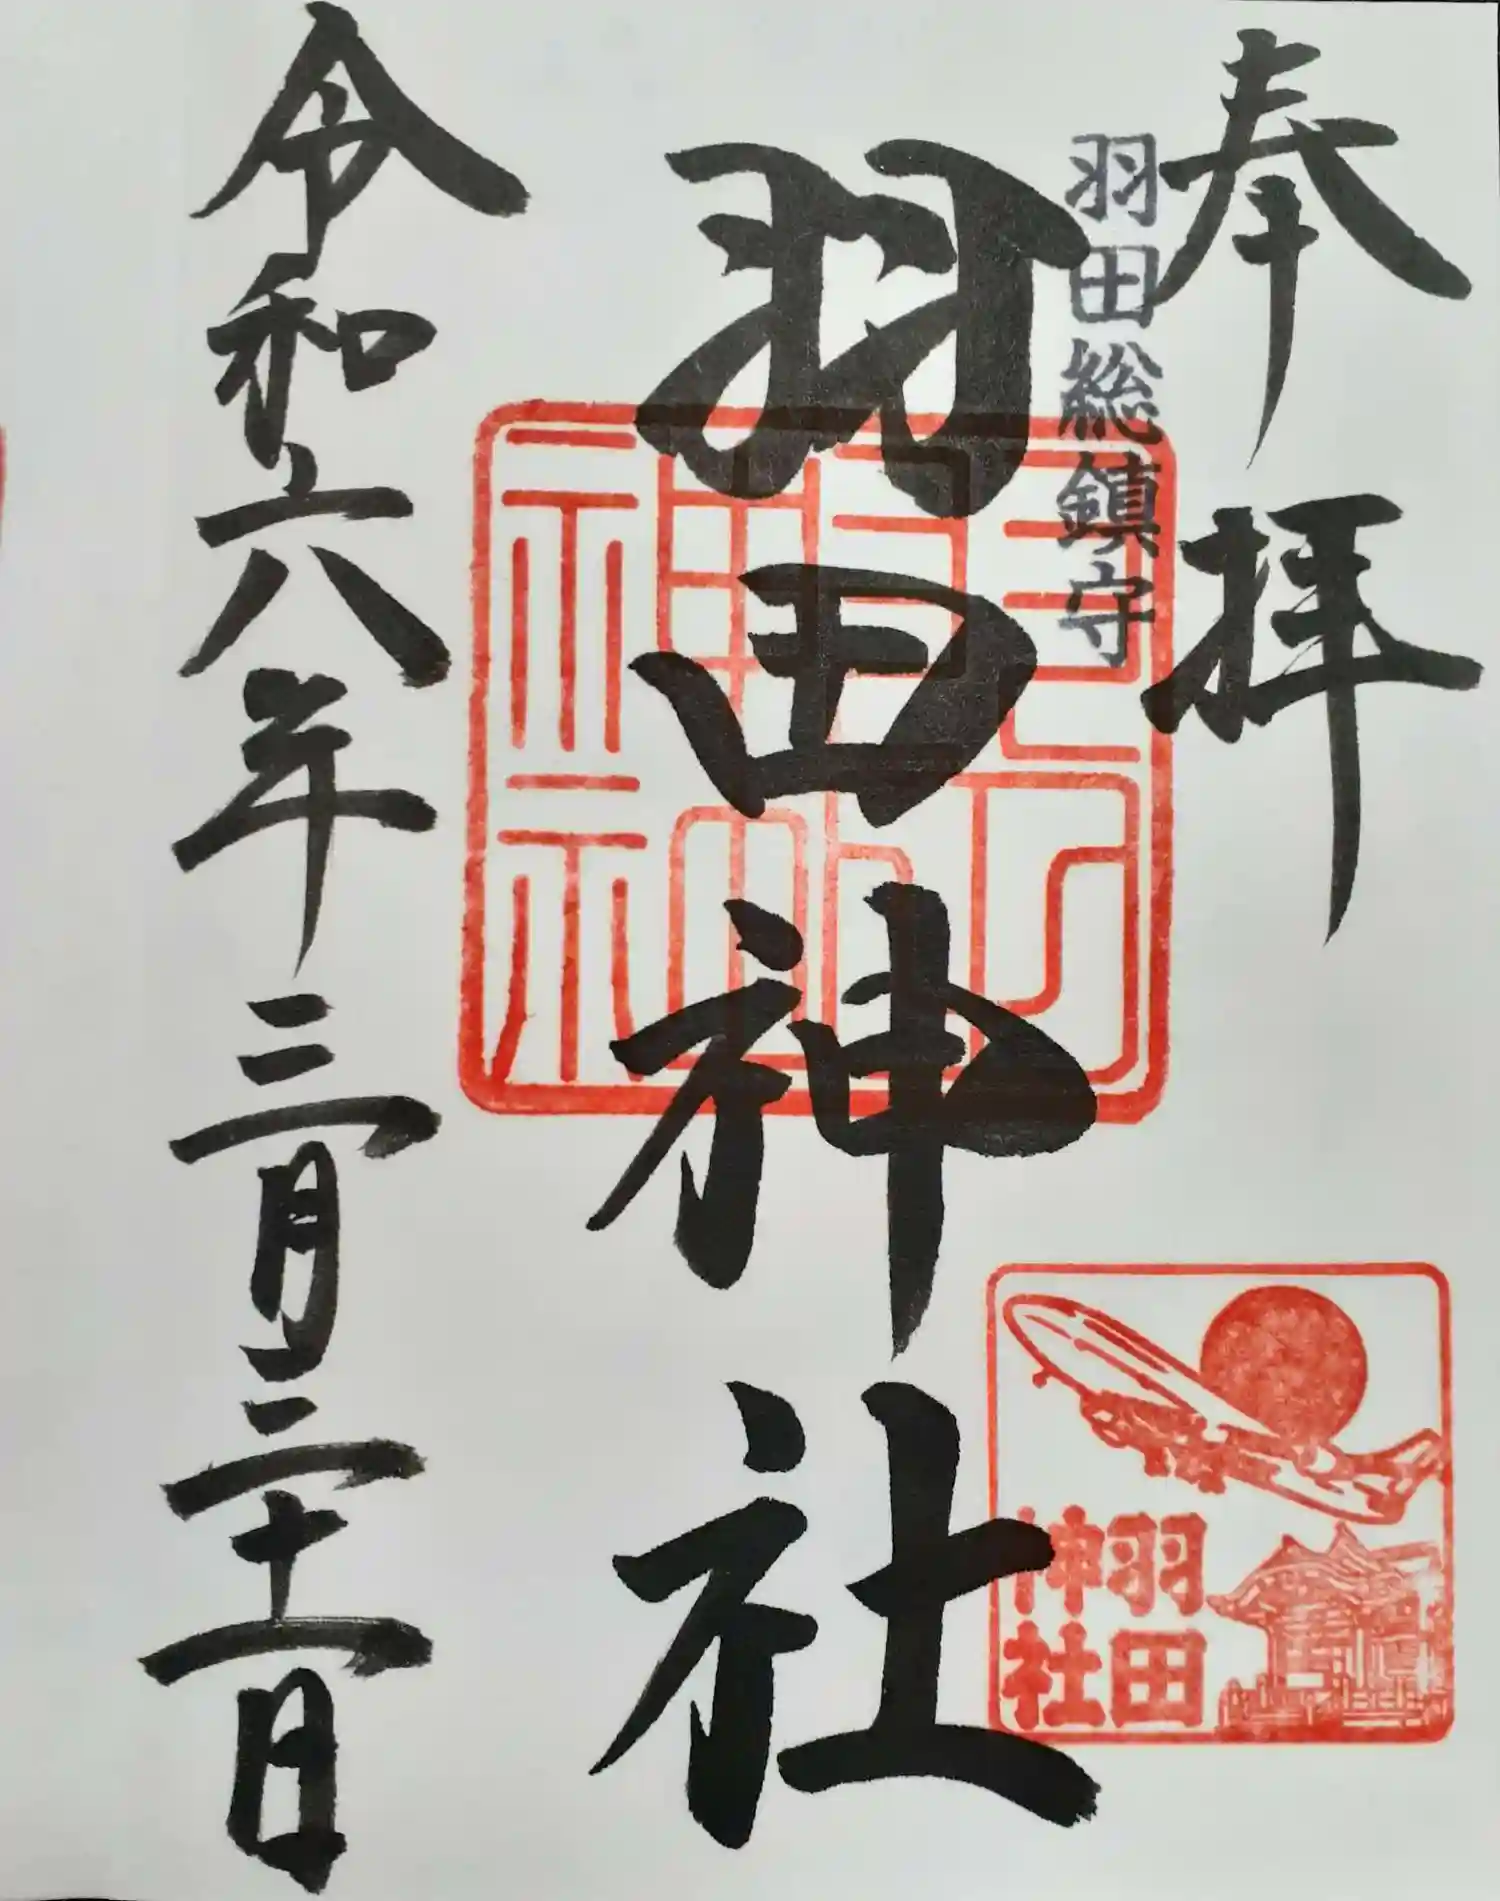 奉拝
羽田総鎮守
羽田神社
令和六年三月三十一日
羽田
神社